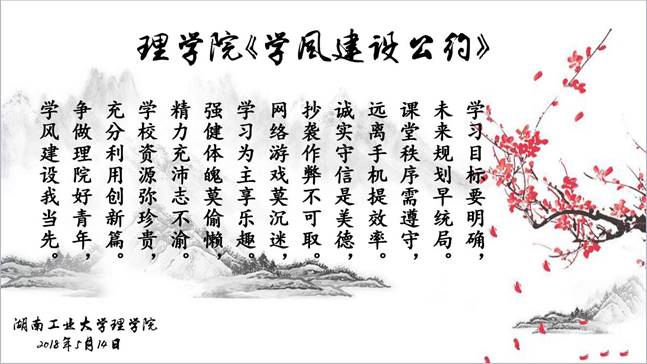 理学院《学风建设公约》
学习目标要明确，
未来规划早统局。
课堂秩序需遵守，
远离手机提效率。
诚实守信是美德，
抄袭作弊不可取。
网络游戏莫沉迷，
学习为主享乐趣。
强健体魄莫偷懒，
精力充沛志不渝。
学校资源弥珍贵，
充分利用创新篇。
争做理院好青年，
学风建设我当先。
湖南工业大学理学院
2018年5月14日